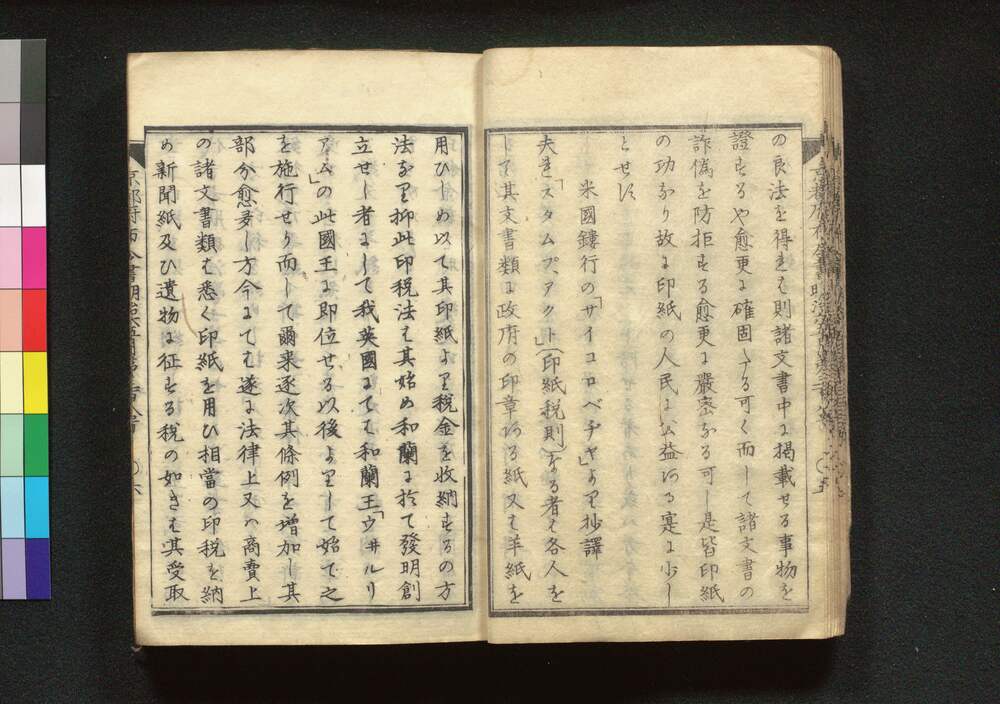 の良法を得れは則諸文書中に掲載せる事物を
證するや愈更に確固たる可く而して諸文書の
詐偽を防拒する愈更に嚴密なる可し是皆印紙
の功なり故に印紙の人民に公益ある寔に少し
とせす
米國鏤行の「サイコロペヂヤ」より抄譯
夫れ「スタムプ、アクト」(印紙税則)なる者は各人を
して其文書類に政府の印章ある紙又は羊紙を
用ひしめ以て其印紙より税金を收納するの方
法なり抑此印税法は其始め和蘭に於て發明創
立せし者にして我英國にては和蘭王「ウヰルリ
アム」の此國王に即位せる以後よりして始て之
を施行せり而して爾来逐次其條例を增加し其
部分愈多し方今にては遂に法律上又ハ商賣上
の諸文書類は悉く印紙を用ひ相當の印税を納
め新聞紙及ひ遺物に征する税の如きは其受取